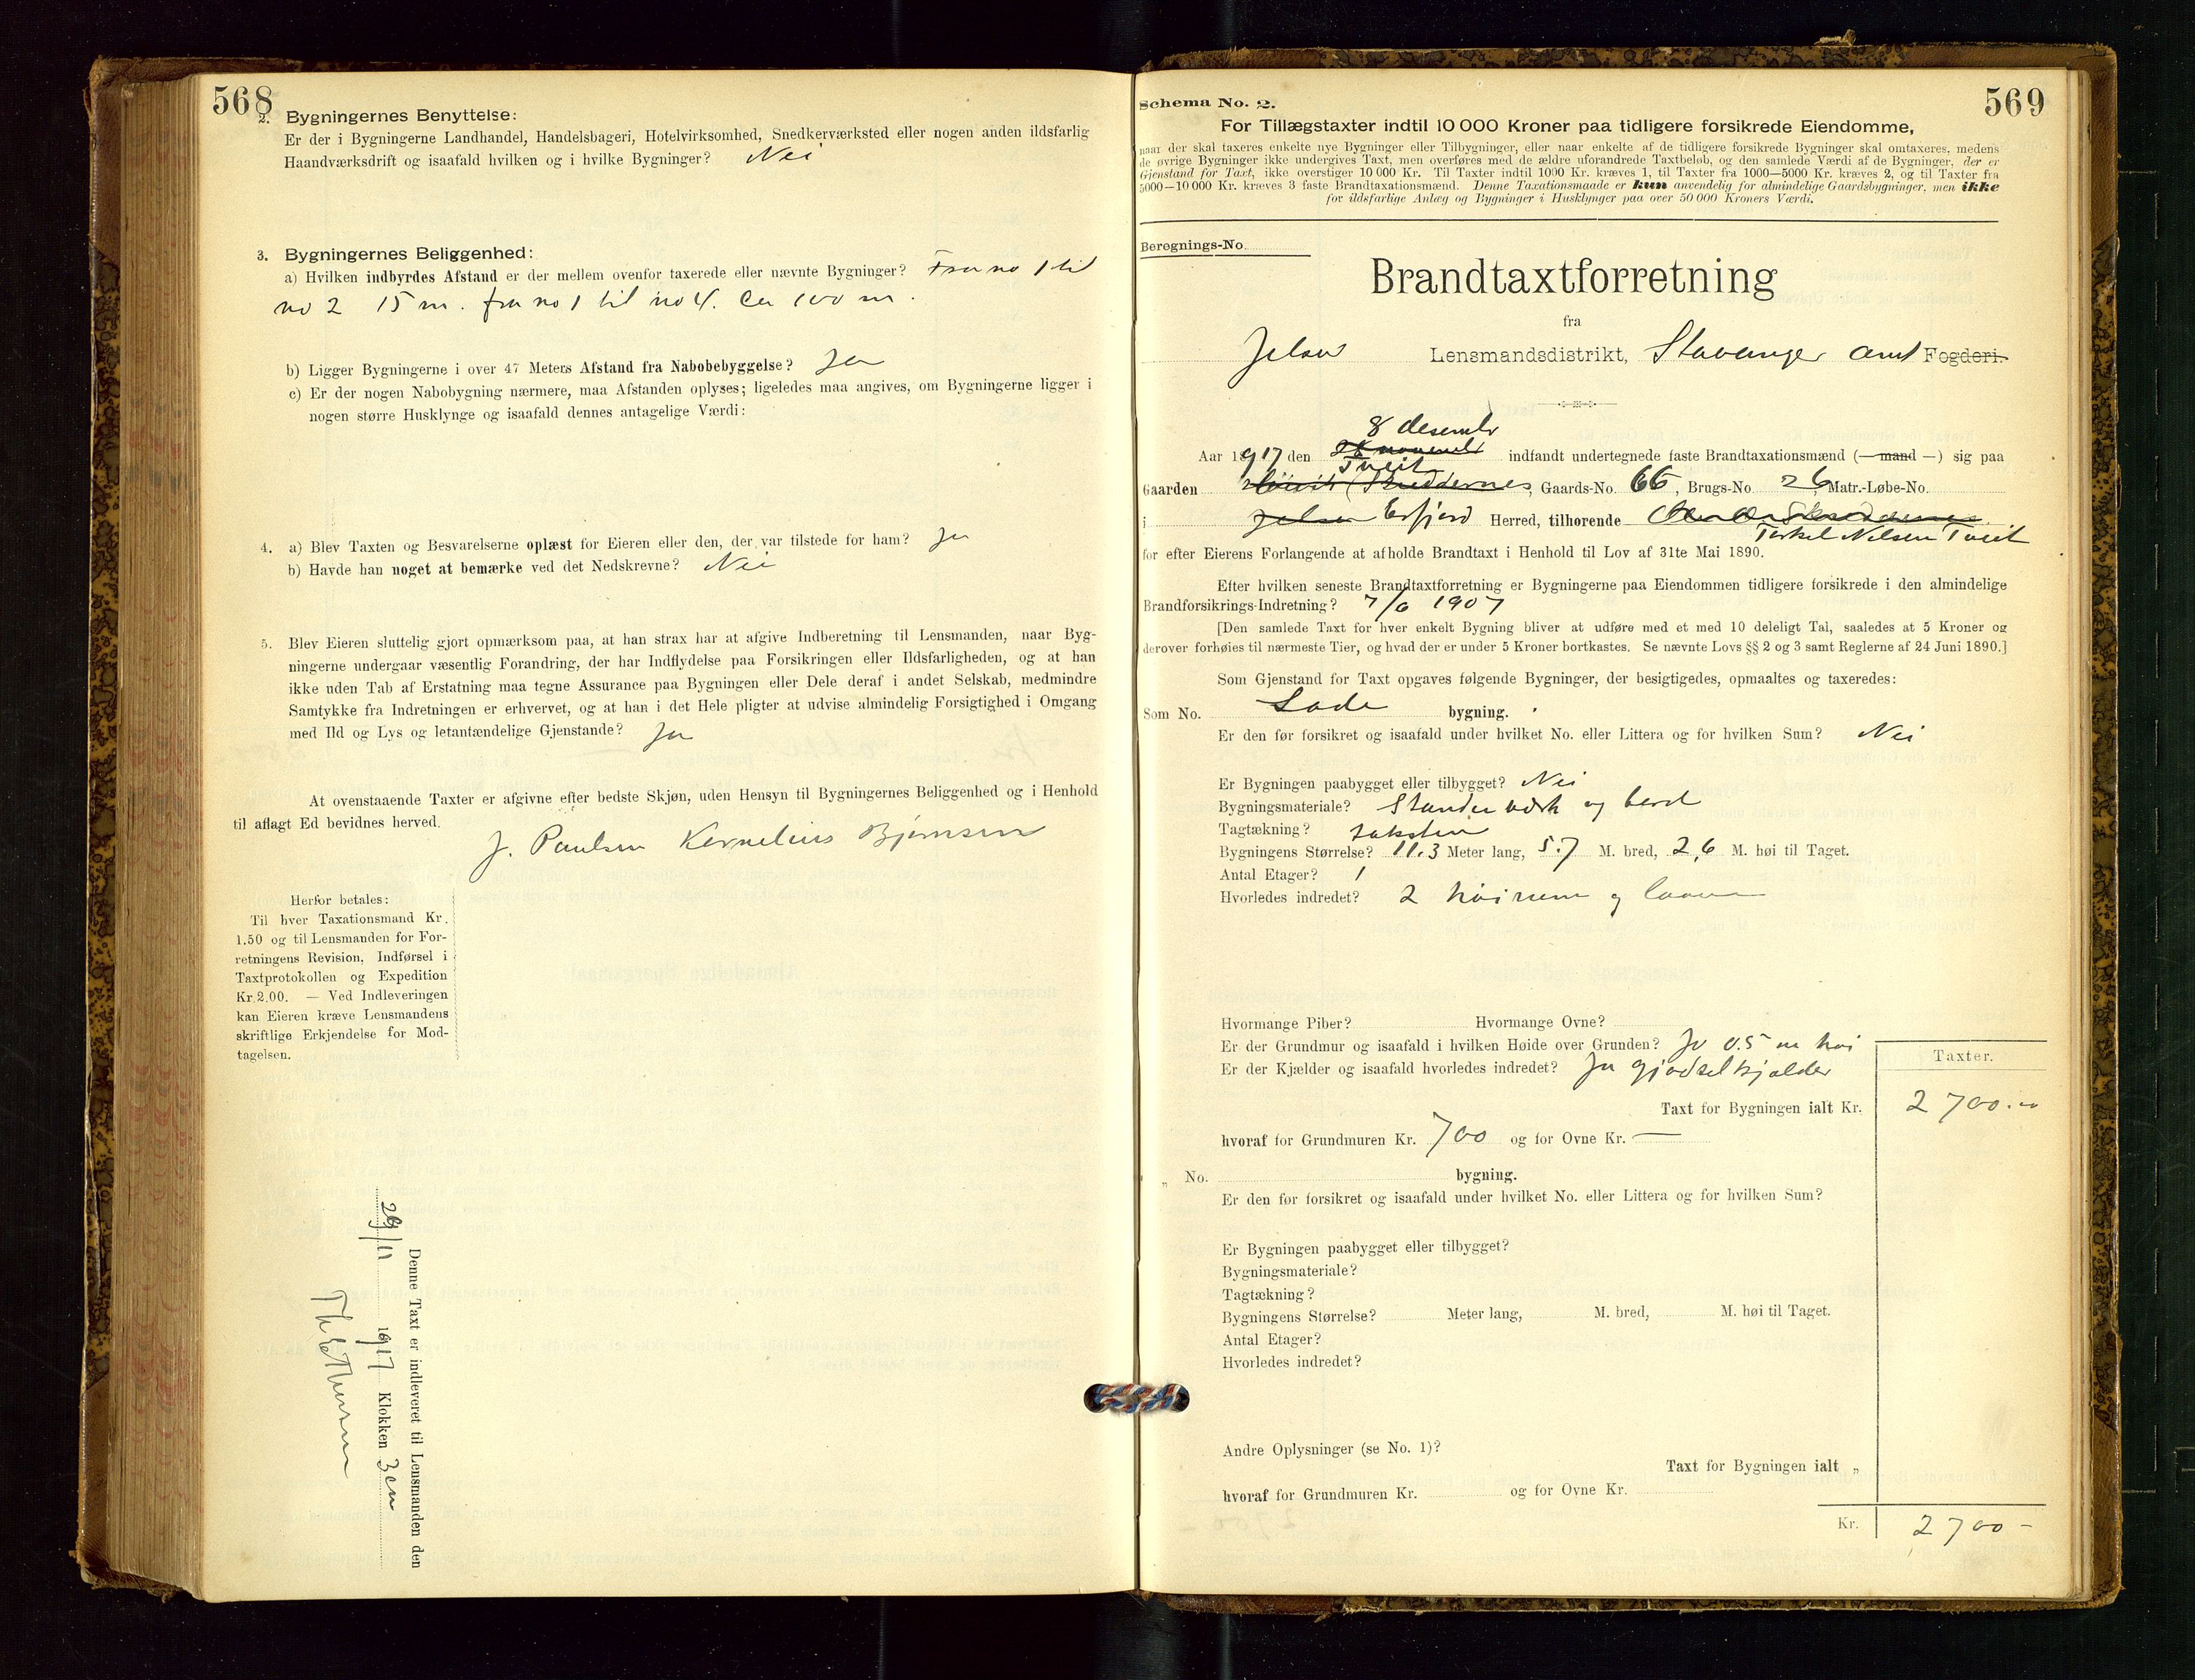 568
2. Bygningernes Benyttelse:
Er der i Bygningerne Landhandel, Handelsbageri, Hotelvirksomhed, Snedkerværksted eller nogen anden ildsfarlig
Haandværksdrift og isaafald hvilken og i hvilke Bygninger? Nei
3. Bygningernes Beliggenhed:
a) Hvilken indbyrdes Afstand er der mellem ovenfor taxerede eller nævnte Bygninger? Fra no 1 til
no 2 15 m. fra no 1 til no 4. Ca 100 m.
b) Ligger Bygningerne i over 47 Meters Afstand fra Nabobebyggelse? Ja
c) Er der nogen Nabobygning nærmere, maa Afstanden oplyses; ligeledes maa angives, om Bygningerne ligger i
nogen større Husklynge og isaafald dennes antagelige Værdi:
4. a) Blev Taxten og Besvarelserne oplæst for Eieren eller den, der var tilstede for ham? Ja
b) Havde han noget at bemærke ved det Nedskrevne? Nei
5. Blev Eieren sluttelig gjort opmærksom paa, at han strax har at afgive Indberetning til Lensmanden, naar Byg-
ningerne undergaar væsentlig Forandring, der har Indflydelse paa Forsikringen eller Ildsfarligheden, og at han
ikke uden Tab af Erstatning maa tegne Assurance paa Bygningen eller Dele deraf i andet Selskab, medmindre
Samtykke fra Indretningen er erhvervet, og at han i det Hele pligter at udvise almindelig Forsigtighed i Omgang
med Ild og Lys og letantændelige Gjenstande? Ja
At ovenstaaende Taxter er afgivne efter bedste Skjøn, uden Hensyn til Bygningernes Beliggenhed og i Henhold
til aflagt Ed bevidnes herved.
J. Paulsen Kornelius Bjørnsen
Herfor betales:
Til hver Taxationsmand Kr.
1.50 og til Lensmanden for For-
retningens Revision, Indførsel i
Taxtprotokollen og Expedition
Kr. 2.00. — Ved Indleveringen
kan Eieren kræve Lensmandens
skriftlige Erkjendelse for Mod-
tagelsen.
Denne Taxt er indleveret til Lensmanden den
29/11 1917 Klokken 3 em
569
Schema No. 2.
For Tillægstaxter indtil 10 000 Kroner paa tidligere forsikrede Eiendomme,
naar der skal taxeres enkelte nye Bygninger eller Tilbygninger, eller naar enkelte af de tidligere forsikrede Bygninger skal omtaxeres, medens
de øvrige Bygninger ikke undergives Taxt, men overføres med de ældre uforandrede Taxtbeløb, og den samlede Værdi af de Bygninger, der er
Gjenstand for Taxt, ikke overstiger 10 000 Kr. Til Taxter indtil 1000 Kr. kræves 1, til Taxter fra 1000—5000 Kr. kræves 2, og til Taxter fra
5000—10 000 Kr. kræves 3 faste Brandtaxationsmænd. Denne Taxationsmaade er kun anvendelig for almindelige Gaardsbygninger, men ikke
for ildsfarlige Anlæg og Bygninger i Husklynger paa over 50 000 Kroners Værdi.
Beregnings-No.
Brandtaxtforretning
fra
Jelsa Lensmandsdistrikt, Stavanger amt Fogderi.
8 desembr
Aar 1917 den 28 novembr indfandt undertegnede faste Brandtaxationsmænd (— mand —) sig paa
Tveit
Gaarden Skreddernes, Gaards-No. 66, Brugs-No. 26 Matr.-Løbe-No.
i Jelsa Erfjord Herred, tilhørende
Torkel Nilsen Tveit
for efter Eierens Forlangende at afholde Brandtaxt i Henhold til Lov af 31te Mai 1890.
Efter hvilken seneste Brandtaxtforretning er Bygningerne paa Eiendommen tidligere forsikrede i den almindelige
Brandforsikrings-Indretning? 7/6 1907
[Den samlede Taxt for hver enkelt Bygning bliver at udføre med et med 10 deleligt Tal, saaledes at 5 Kroner og
derover forhøies til nærmeste Tier, og hvad der er under 5 Kroner bortkastes. Se nævnte Lovs §§ 2 og 3 samt Reglerne af 24 Juni 1890.]
Som Gjenstand for Taxt opgaves følgende Bygninger, der besigtigedes, opmaaltes og taxeredes:
Som No. Lade bygning.
Er den før forsikret og isaafald under hvilket No. eller Littera og for hvilken Sum? Nei
Er Bygningen paabygget eller tilbygget? Nei
Bygningsmateriale? Standerverk og bord
Tagtækning? taksten
Bygningens Størrelse? 11.3 Meter lang, 5.7 M. bred, 2,6 M. høi til Taget.
Antal Etager? 1
Hvorledes indredet? 2 høirum og laave
Hvormange Piber? Hvormange Ovne?
Er der Grundmur og isaafald i hvilken Høide over Grunden? Ja 0.5 m høi
Er der Kjælder og isaafald hvorledes indredet? Ja gjødselkjælder
Taxter.
Taxt for Bygningen ialt Kr. 2700.00
hvoraf for Grundmuren Kr. 700 og for Ovne Kr. —
„ No. bygning.
Er den før forsikret og isaafald under hvilket No. eller Littera og for hvilken Sum?
Er Bygningen paabygget eller tilbygget?
Bygningsmateriale?
Tagtækning?
Bygningens Størrelse? Meter lang, M. bred, M. høi til Taget.
Antal Etager?
Hvorledes indredet?
Andre Oplysninger (se No. 1)?
Taxt for Bygningen ialt „
hvoraf for Grundmuren Kr. og for Ovne Kr.
Kr. 2700 -